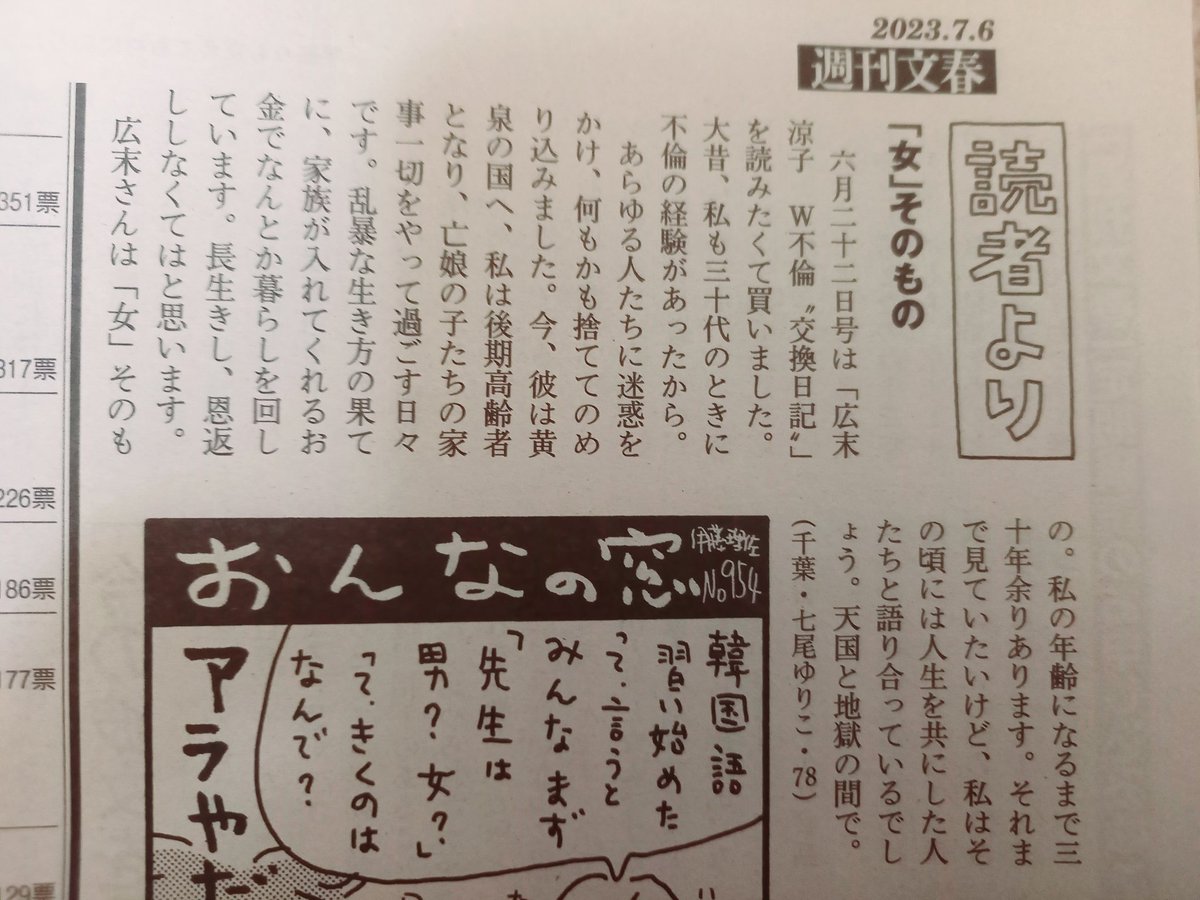 2023.7.6
週刊文春
読者より
「女」そのもの
六月二十二日号は「広末
涼子 W不倫〝交換日記〟」
を読みたくて買いました。
大昔、私も三十代のときに
不倫の経験があったから。
あらゆる人たちに迷惑を
かけ、何もかも捨ててのめ
り込みました。今、彼は黄
泉の国へ、私は後期高齢者
となり、亡娘の子たちの家
事一切をやって過ごす日々
です。乱暴な生き方の果て
に、家族が入れてくれるお
金でなんとか暮らしを回し
ています。長生きし、恩返
ししなくてはと思います。
広末さんは「女」そのも
の。私の年齢になるまで三
十年余りあります。それま
で見ていたいけど、私はそ
の頃には人生を共にした人
たちと語り合っているでし
ょう。天国と地獄の間で。
(千葉・七尾ゆりこ・78)
おんなの窓
伊藤理佐
No954
韓国語
習い始めた
って、言うと
みんなまず
「先生は
男?女?」
って、きくのは
なんで?
アラやだ
351票
317票
226票
186票
177票
129票